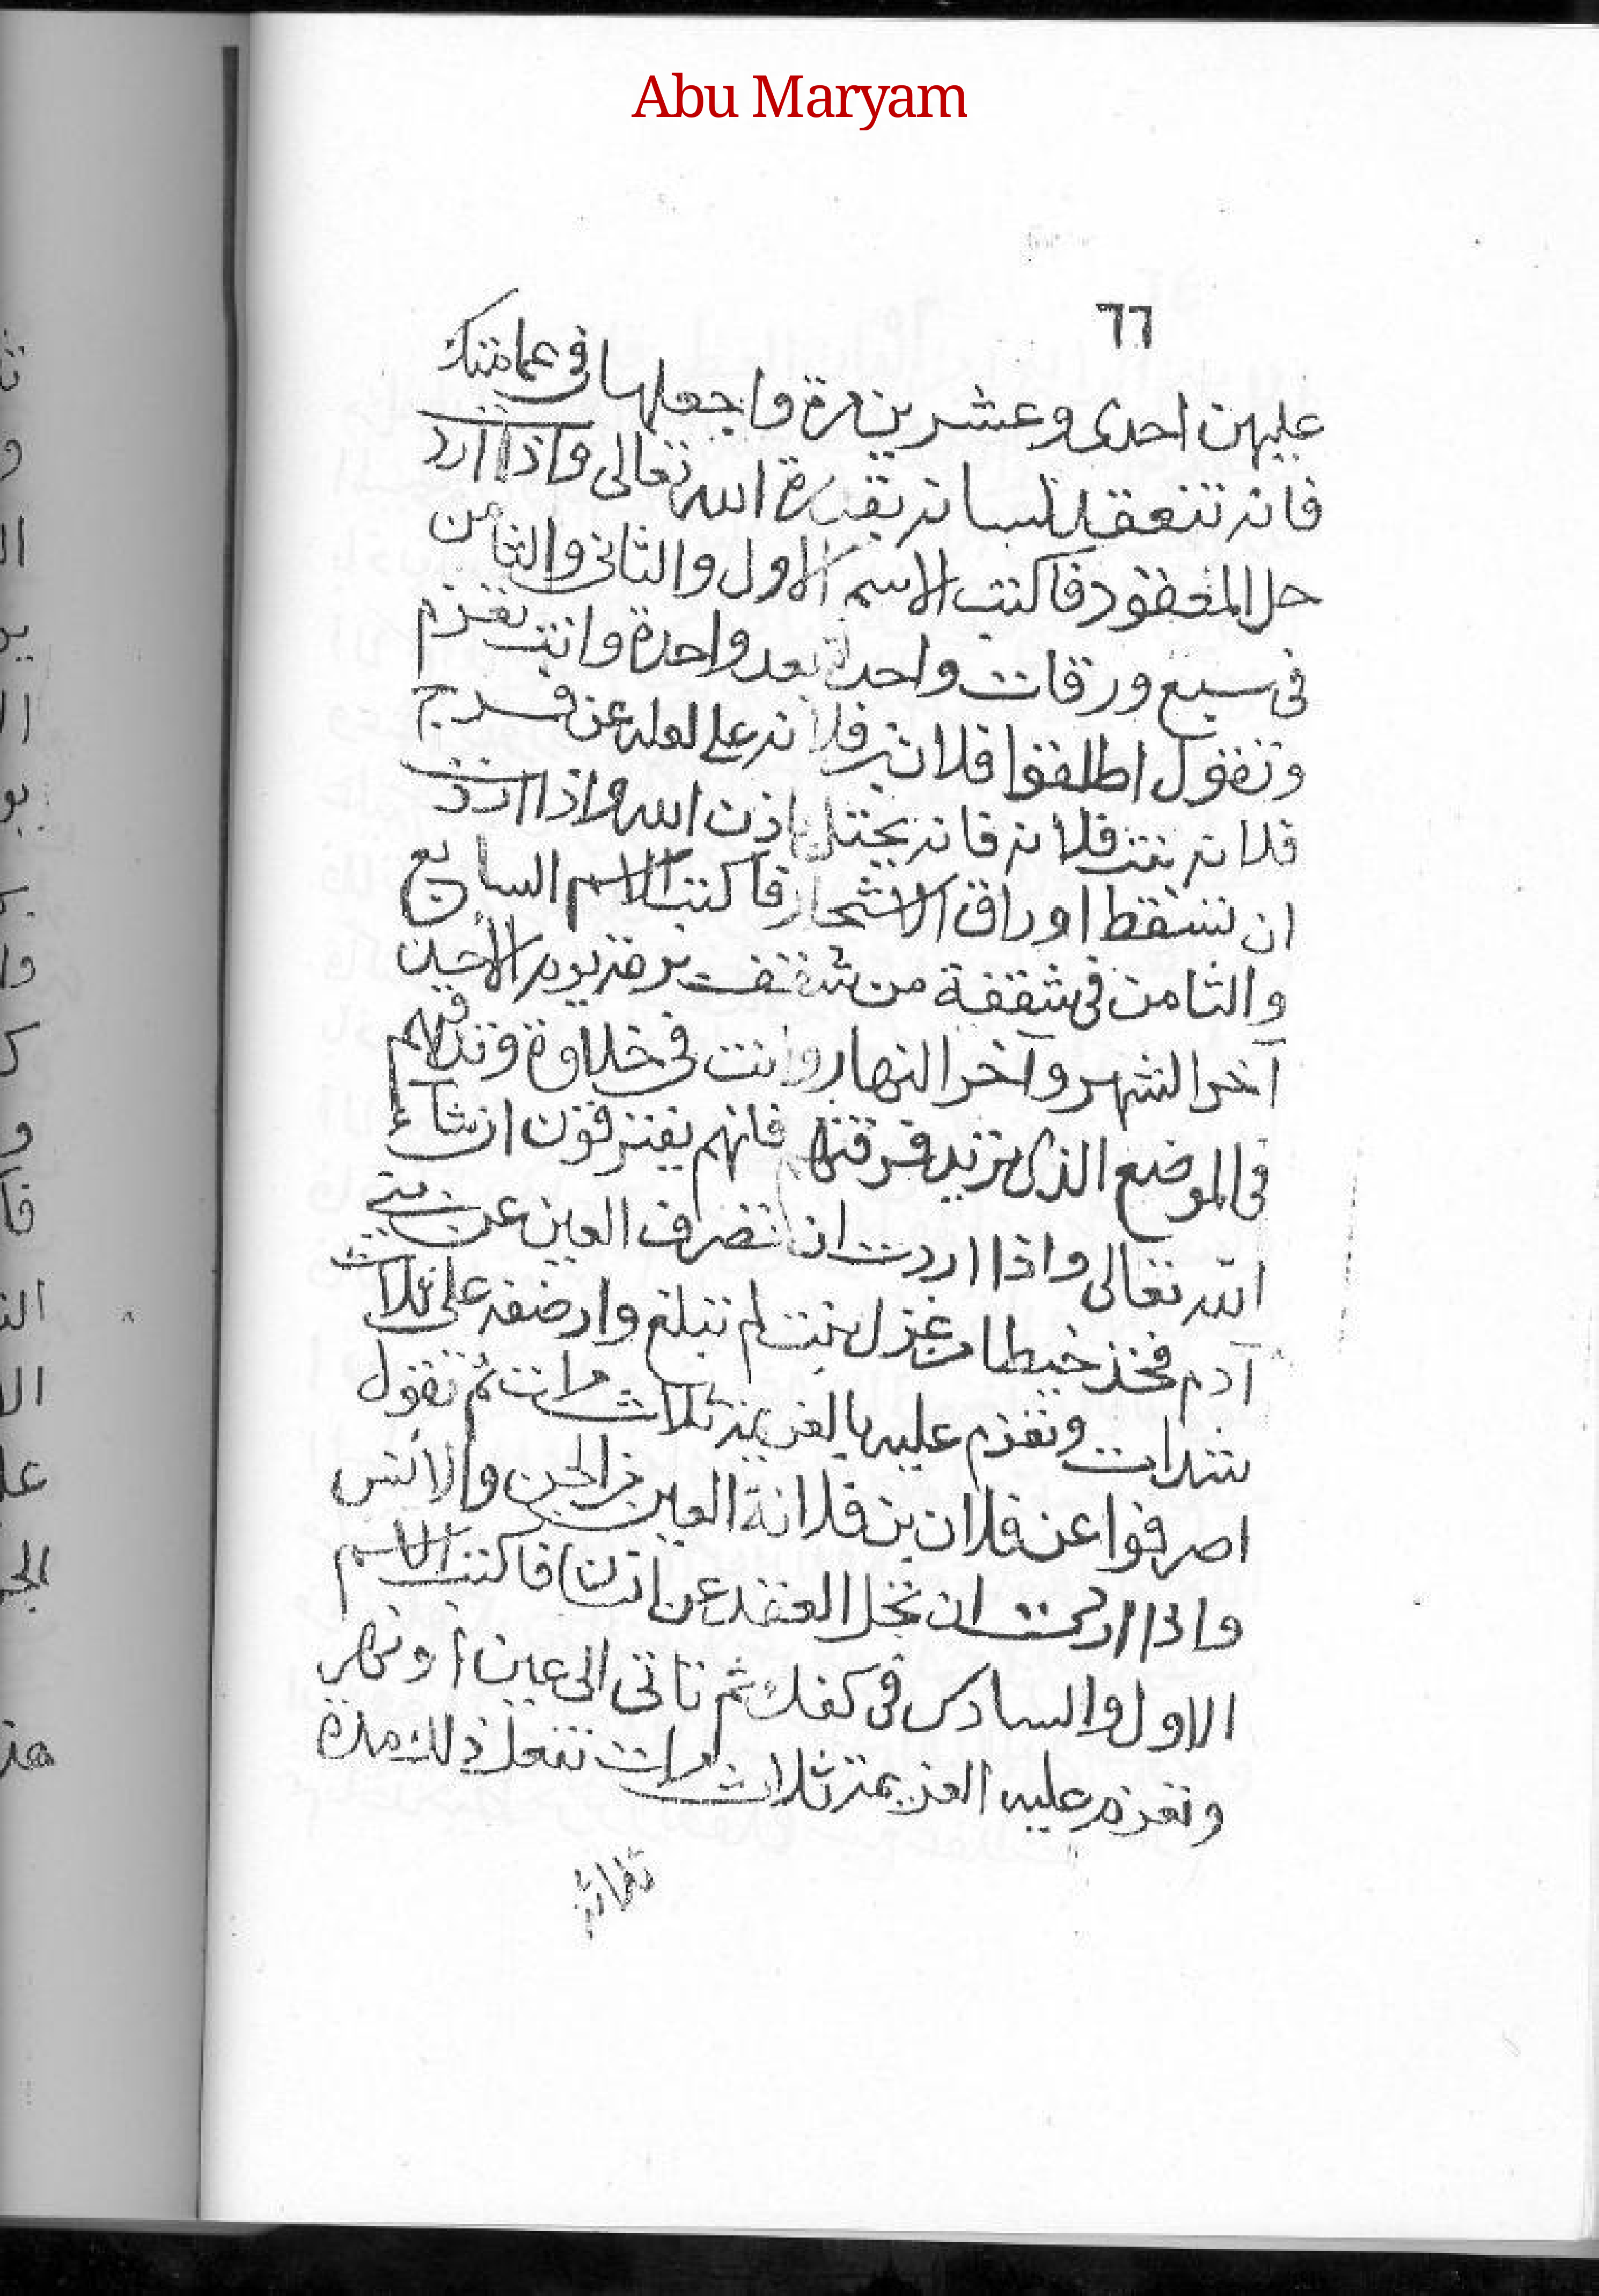 Abu Maryam
٦٦
عليهن احدى وعشرين مرة واجعلها فى عمامتك
فانه تنعقد لسانه بقدرة الله تعالى واذا اردت
حل المعقود فاكتب الاسم الاول والثانى والثامن
فى سبع ورقات واحدة بعد واحدة وانت تعزم
وتقول اطلقوا فلان بن فلانه على لعله عن فرج
فلانه بنت فلانه فانه يحتل باذن الله واذا اردت
ان تسقط اوراق الاشجار فاكتب الاسم السابع
والثامن فى شقفة من شقف يوم الأحد
آخر الشهر وآخر النهار وانت فى خلاوة وتدفنهم
فى الموضع الذى تريد فرقتهم فانهم يفترقون ان شاء
الله تعالى واذا اردت ان تصرف العين عن بنى
آدم فخذ خيطا من غزل بنت لم تبلغ وارضفه على ثلاث
شدات وتعزم عليه بالعزيمة ثلاث مرات ثم تقول
اصرفوا عن فلان بن فلانة العين من الجن والانس
واذا اردت ان تحل العقد عن فاكتب الاسم
الاول والسادس فى كفك ثم تاتى الى عين او نهر
وتعزم عليه العزيمة ثلاث مرات تفعل ذلك مدة